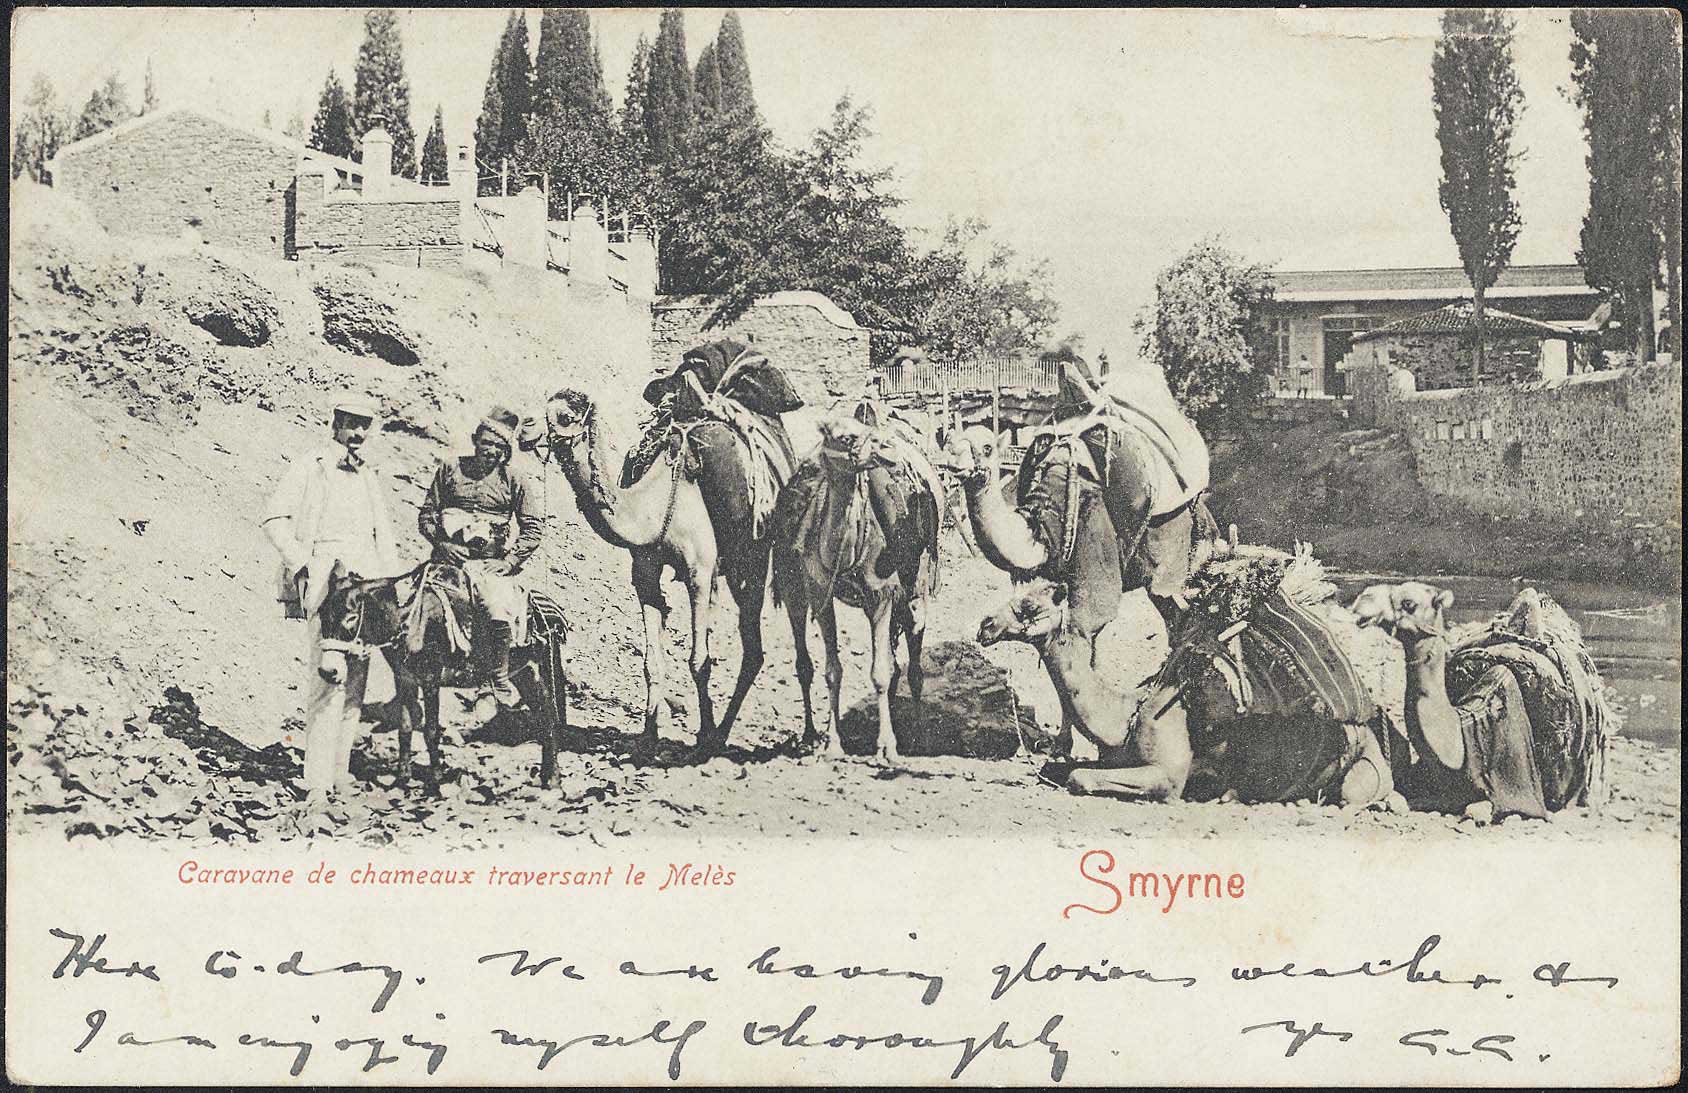 Caravane de chameaux traversant le Melès
Smyrne
Here to-day. We are having glorious weather &
I am enjoying myself thoroughly. Yrs